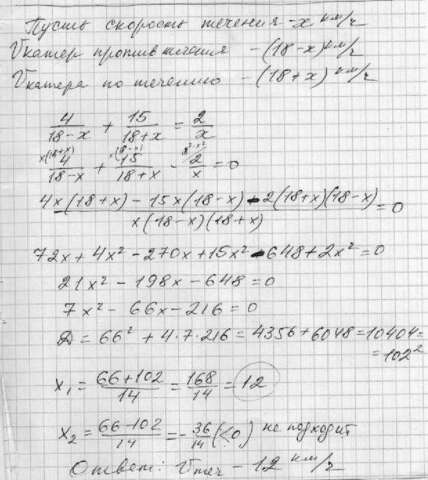 Пусть скорость течения - x км/г
Vкатер против течения - (18-x) км/г
Vкатера по течению - (18+x) км/г
4/(18-x) + 15/(18+x) = 2/x
4/(18-x) + 15/(18+x) - 2/x = 0
(4x(18+x) - 15x(18-x) - 2(18+x)(18-x))/(x(18-x)(18+x)) = 0
72x + 4x² - 270x + 15x² - 648 + 2x² = 0
21x² - 198x - 648 = 0
7x² - 66x - 216 = 0
D = 66² + 4·7·216 = 4356 + 6048 = 10404 =
= 102²
x₁ = (66+102)/14 = 168/14 = 12
x₂ = (66-102)/14 = -36/14 (<0) не подходит
Ответ: Vтеч - 12 км/г